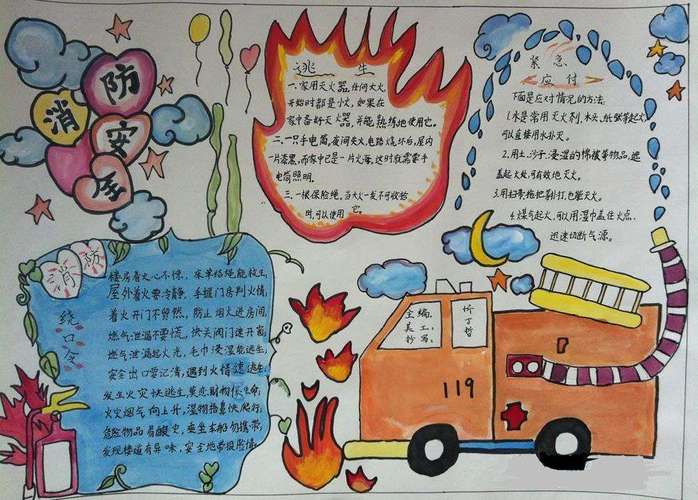 消防安全
逃生
一.家用灭火器.任何大火,
开始时都是小火,如果在
家中备好灭火器,并能熟练地使用它。
二.一只手电筒,夜间失火,电路烧坏后,屋内
一片漆黑,而家中已是一片火海,这时就需要手
电筒照明.
三.一根保险绳,当大火一发不可收拾
时,可以使用它。
紧急
应付
下面是应对情况的方法:
1.水是常用灭火剂,木头,纸张等起火
可以直接用水扑灭。
2.用土.沙子.浸湿的棉被等物品,遮
盖起火处,可有效地灭火。
3.用扫帚,拖把等扑打,也能灭火。
4.煤气起火,可以用湿巾盖住火点.
迅速切断气源。
消防
绕口令
楼房着火心不惊,床单结绳能救生;
屋外着火要冷静,手摸门房判火情,
着火开门不贸然,防止烟火进房间,
燃气泄漏不要慌,快关阀门速开窗,
燃气泄漏起火光,毛巾浸湿能逃生,
安全出口要记清,遇到火情速逃生,
发生火灾快逃生,莫恋财物
火灾烟气向上升,湿物捂鼻快爬行,
危险物品易酿灾,乘坐车船勿携带,
发现楼道有异味,安全地带报险情
主编:
美工:
抄写:
119